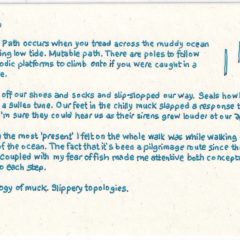 Path occurs when you tread across the muddy ocean
ing low tide. Mutable path. There are poles to follow
odic platforms to climb onto if you were caught in a
off our shoes and socks and slip-slopped our way. Seals howl
a sullen tune. Our feet in the chilly muck slapped a response t
'm sure they could hear us as their sirens grew louder at our a
the most 'present' I felt on the whole walk was while walking
of the ocean. The fact that it's been a pilgrimage route since th
coupled with my fear of fish made me attentive both concept
o each step.
ogy of muck. Slippery topologies.